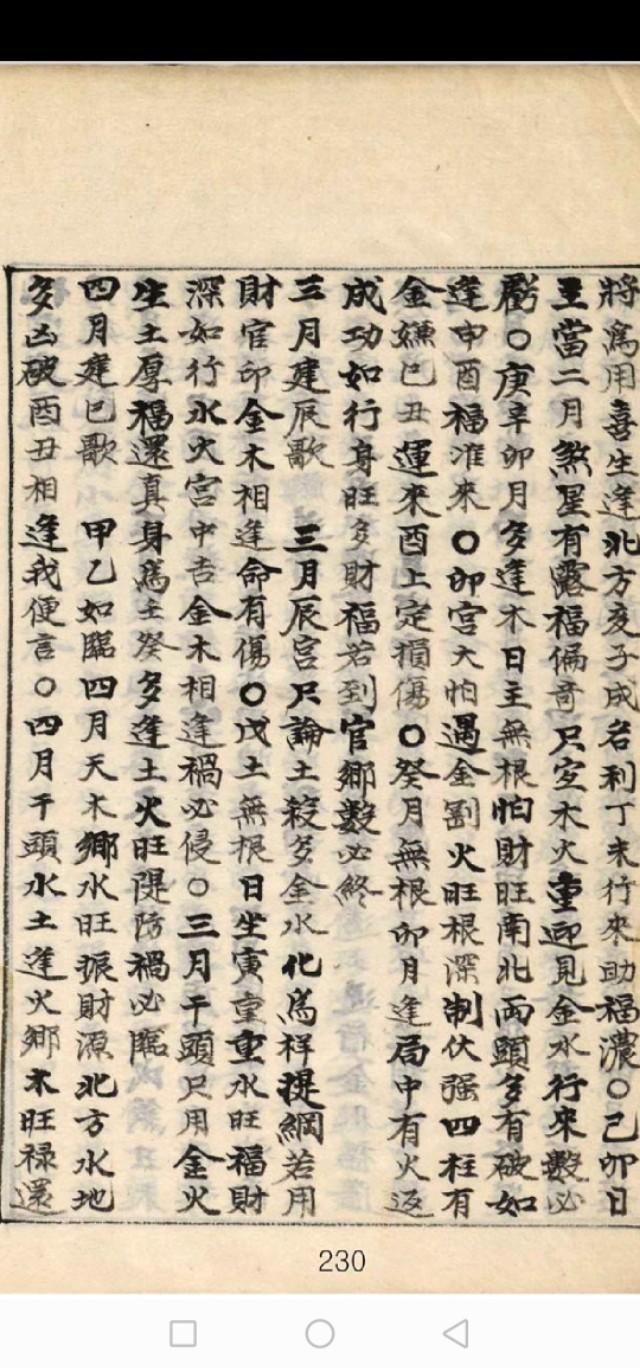 將爲用喜生逢北方亥子成名利丁未行來助福濃〇己卯日
主當二月煞星有露福偏奇只宜木火重迎見金水行來數必
虧〇庚辛卯月多逢木日主無根怕財旺南北兩頭多有破如
逢申酉福淮來〇卯宮大怕遇金割火旺根深制伏强四柱有
金嫌巳丑運來酉上定損傷〇癸月無根卯月逢局中有火返
成功如行身旺多財福若到官鄉數必終
三月建辰歌 三月辰宮只論土殺多金水化爲祥提綱若用
財官印金木相逢命有傷〇戊土無根日坐寅重重水旺福財
深如行水火宮中吉金木相逢禍必侵〇三月干頭只用金火
生土厚福還真身爲壬癸多逢土火旺隄防禍必臨
四月建巳歌 甲乙如臨四月天木鄉水旺振財源北方水地
多凶破酉丑相逢我便言〇四月干頭水土逢火鄉木旺祿還
230